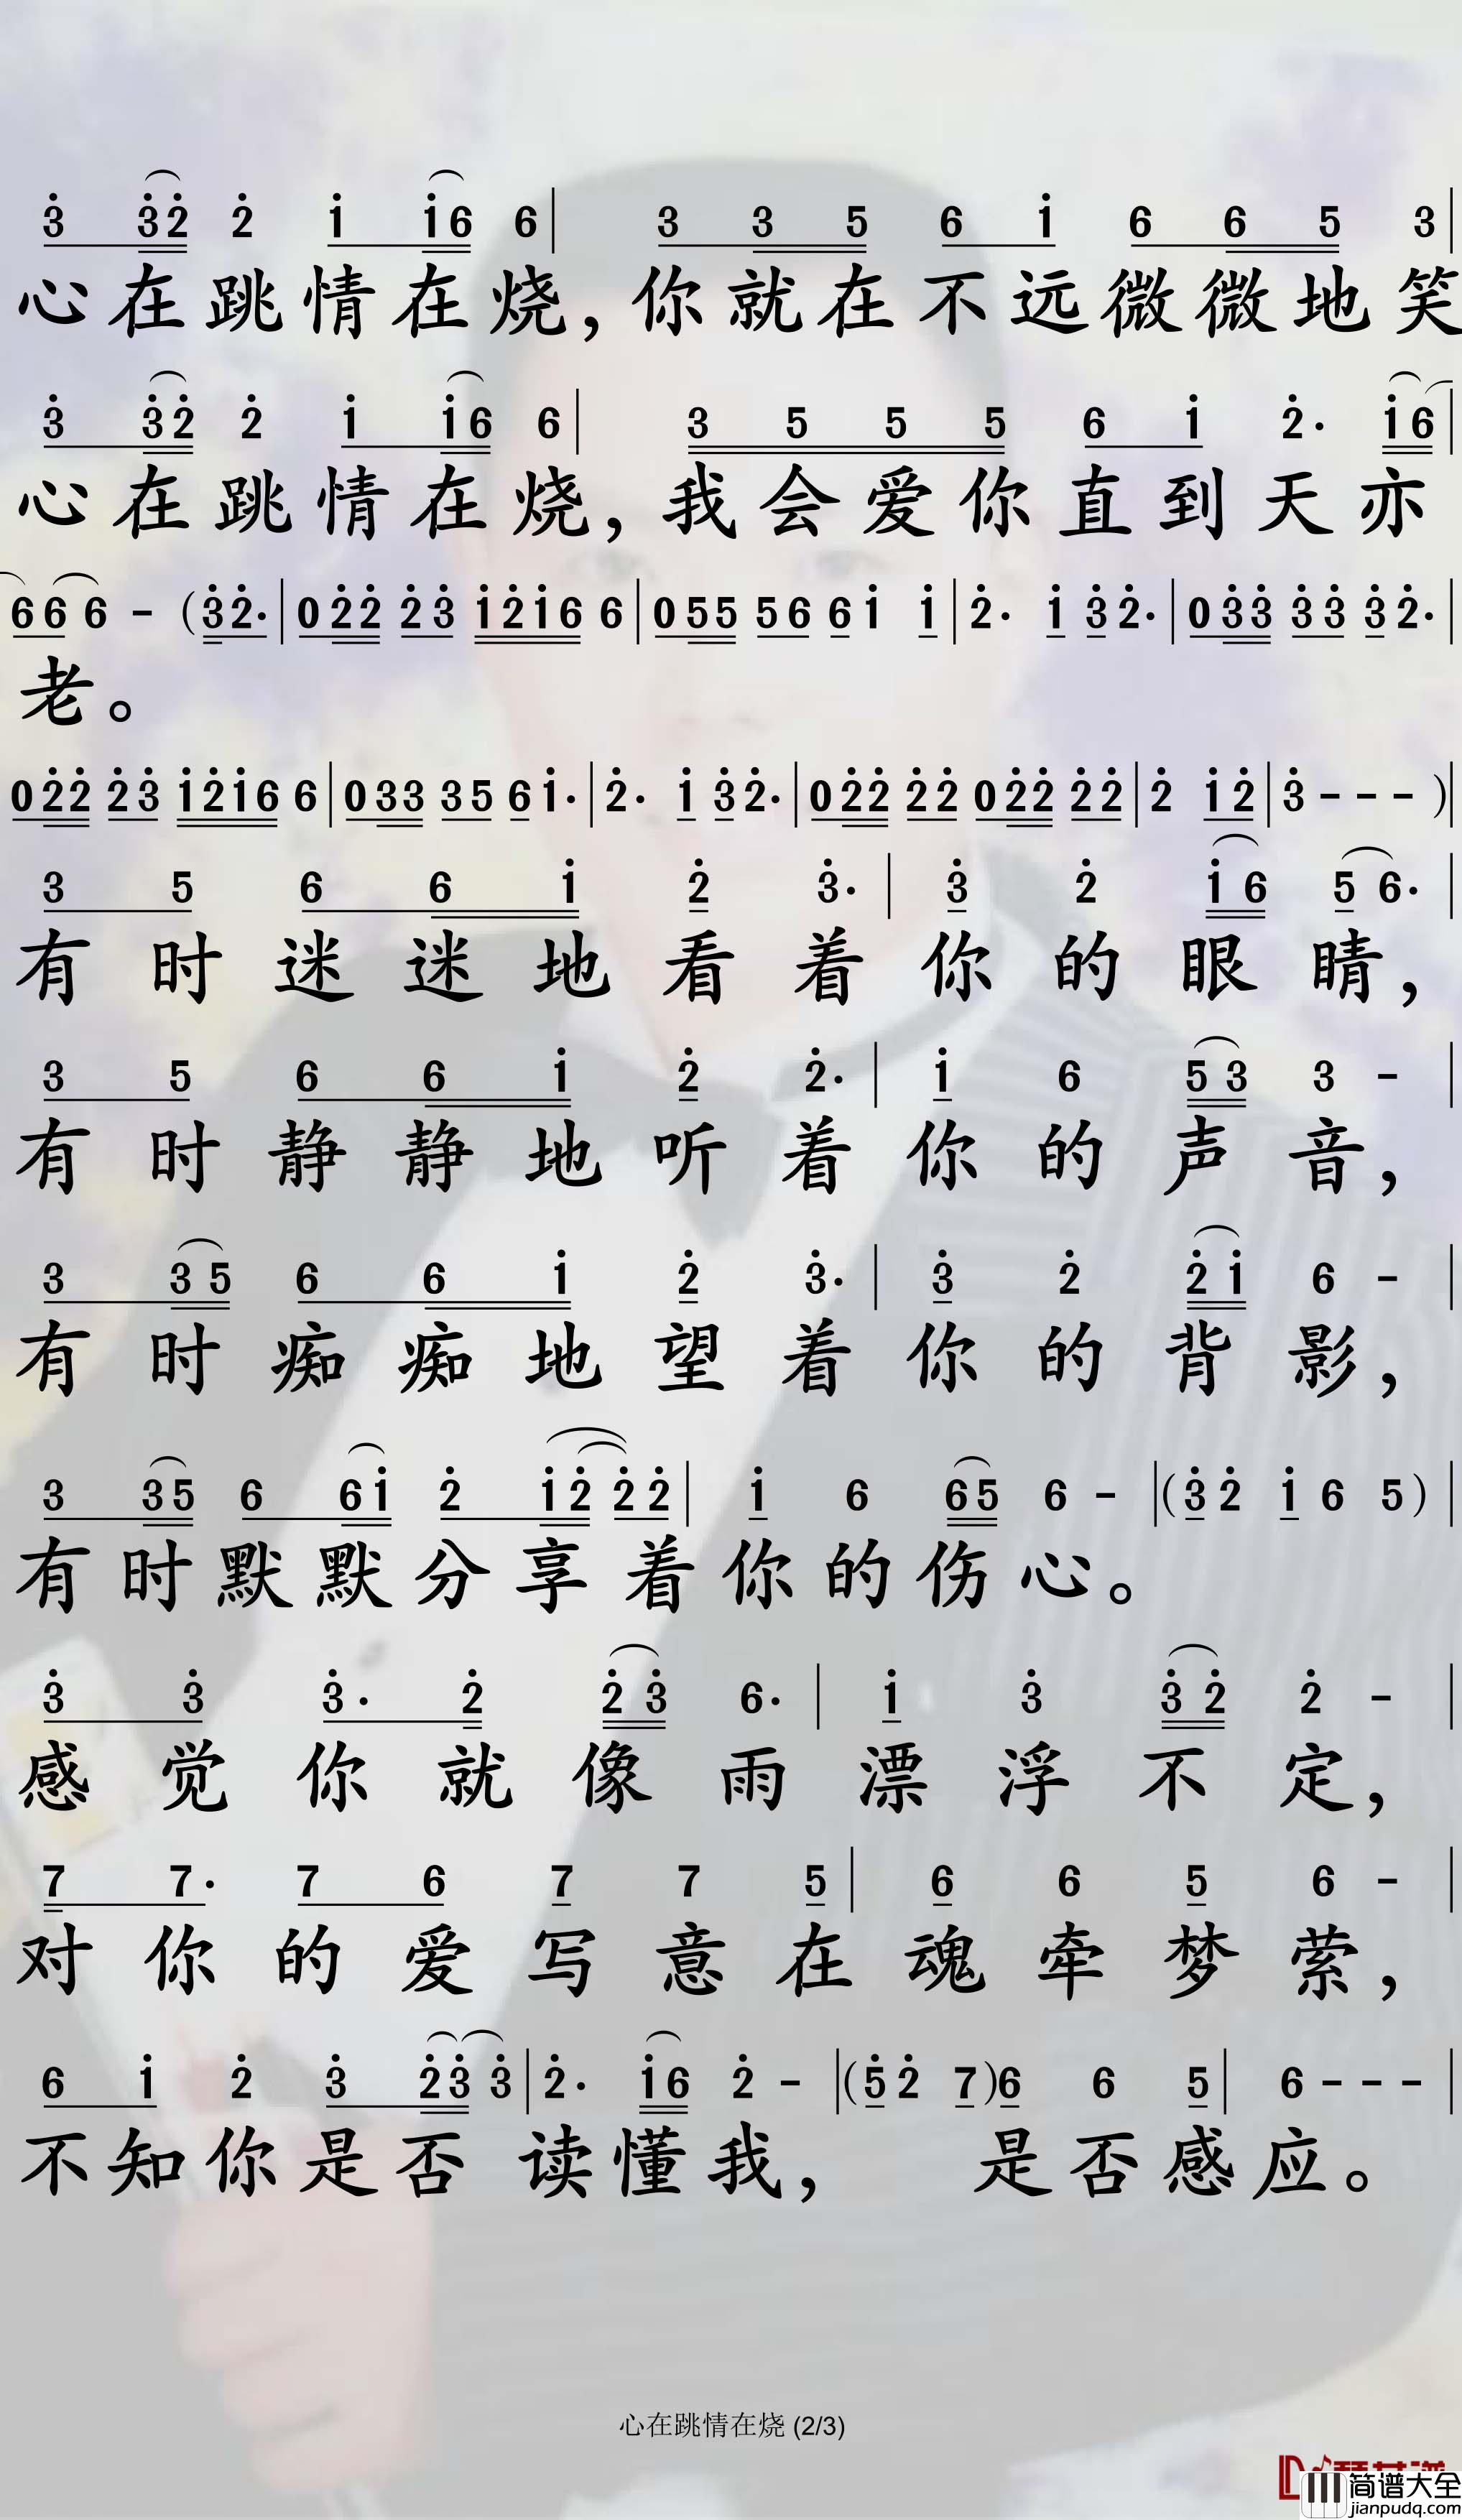 3 32 2 1 16 6| 3 3 5 6 1 6 6 5 3|
心在跳情在烧，你就在不远微微地笑
3 32 2 1 16 6| 3 5 5 5 6 1 2· 16|
心在跳情在烧，我会爱你直到天亦
66 6 - (32·|022 23 1216 6|055 56 61 1|2· 1 32·|033 33 32·|
老。
022 23 1216 6|033 35 61·|2· 1 32·|022 22 022 22|2 12|3 - - - )|
3 5 6 6 1 2 3·| 3 2 16 56·|
有时迷迷地看着你的眼睛，
3 5 6 6 1 2 2·| 1 6 53 3 -|
有时静静地听着你的声音，
3 35 6 6 1 2 3·| 3 2 21 6 -|
有时痴痴地望着你的背影，
3 35 6 61 2 12 22| 1 6 65 6 -|(32 1 6 5)|
有时默默分享着你的伤心。
3 3 3· 2 23 6·| 1 3 32 2 -|
感觉你就像雨漂浮不定，
7 7· 7 6 7 7 5| 6 6 5 6 -|
对你的爱写意在魂牵梦萦，
6 1 2 3 23 3|2· 16 2 -|(52 7)6 6 5| 6 - - -|
不知你是否 读懂我， 是否感应。
心在跳情在烧 (2/3)
简谱大全
jianpudq.com